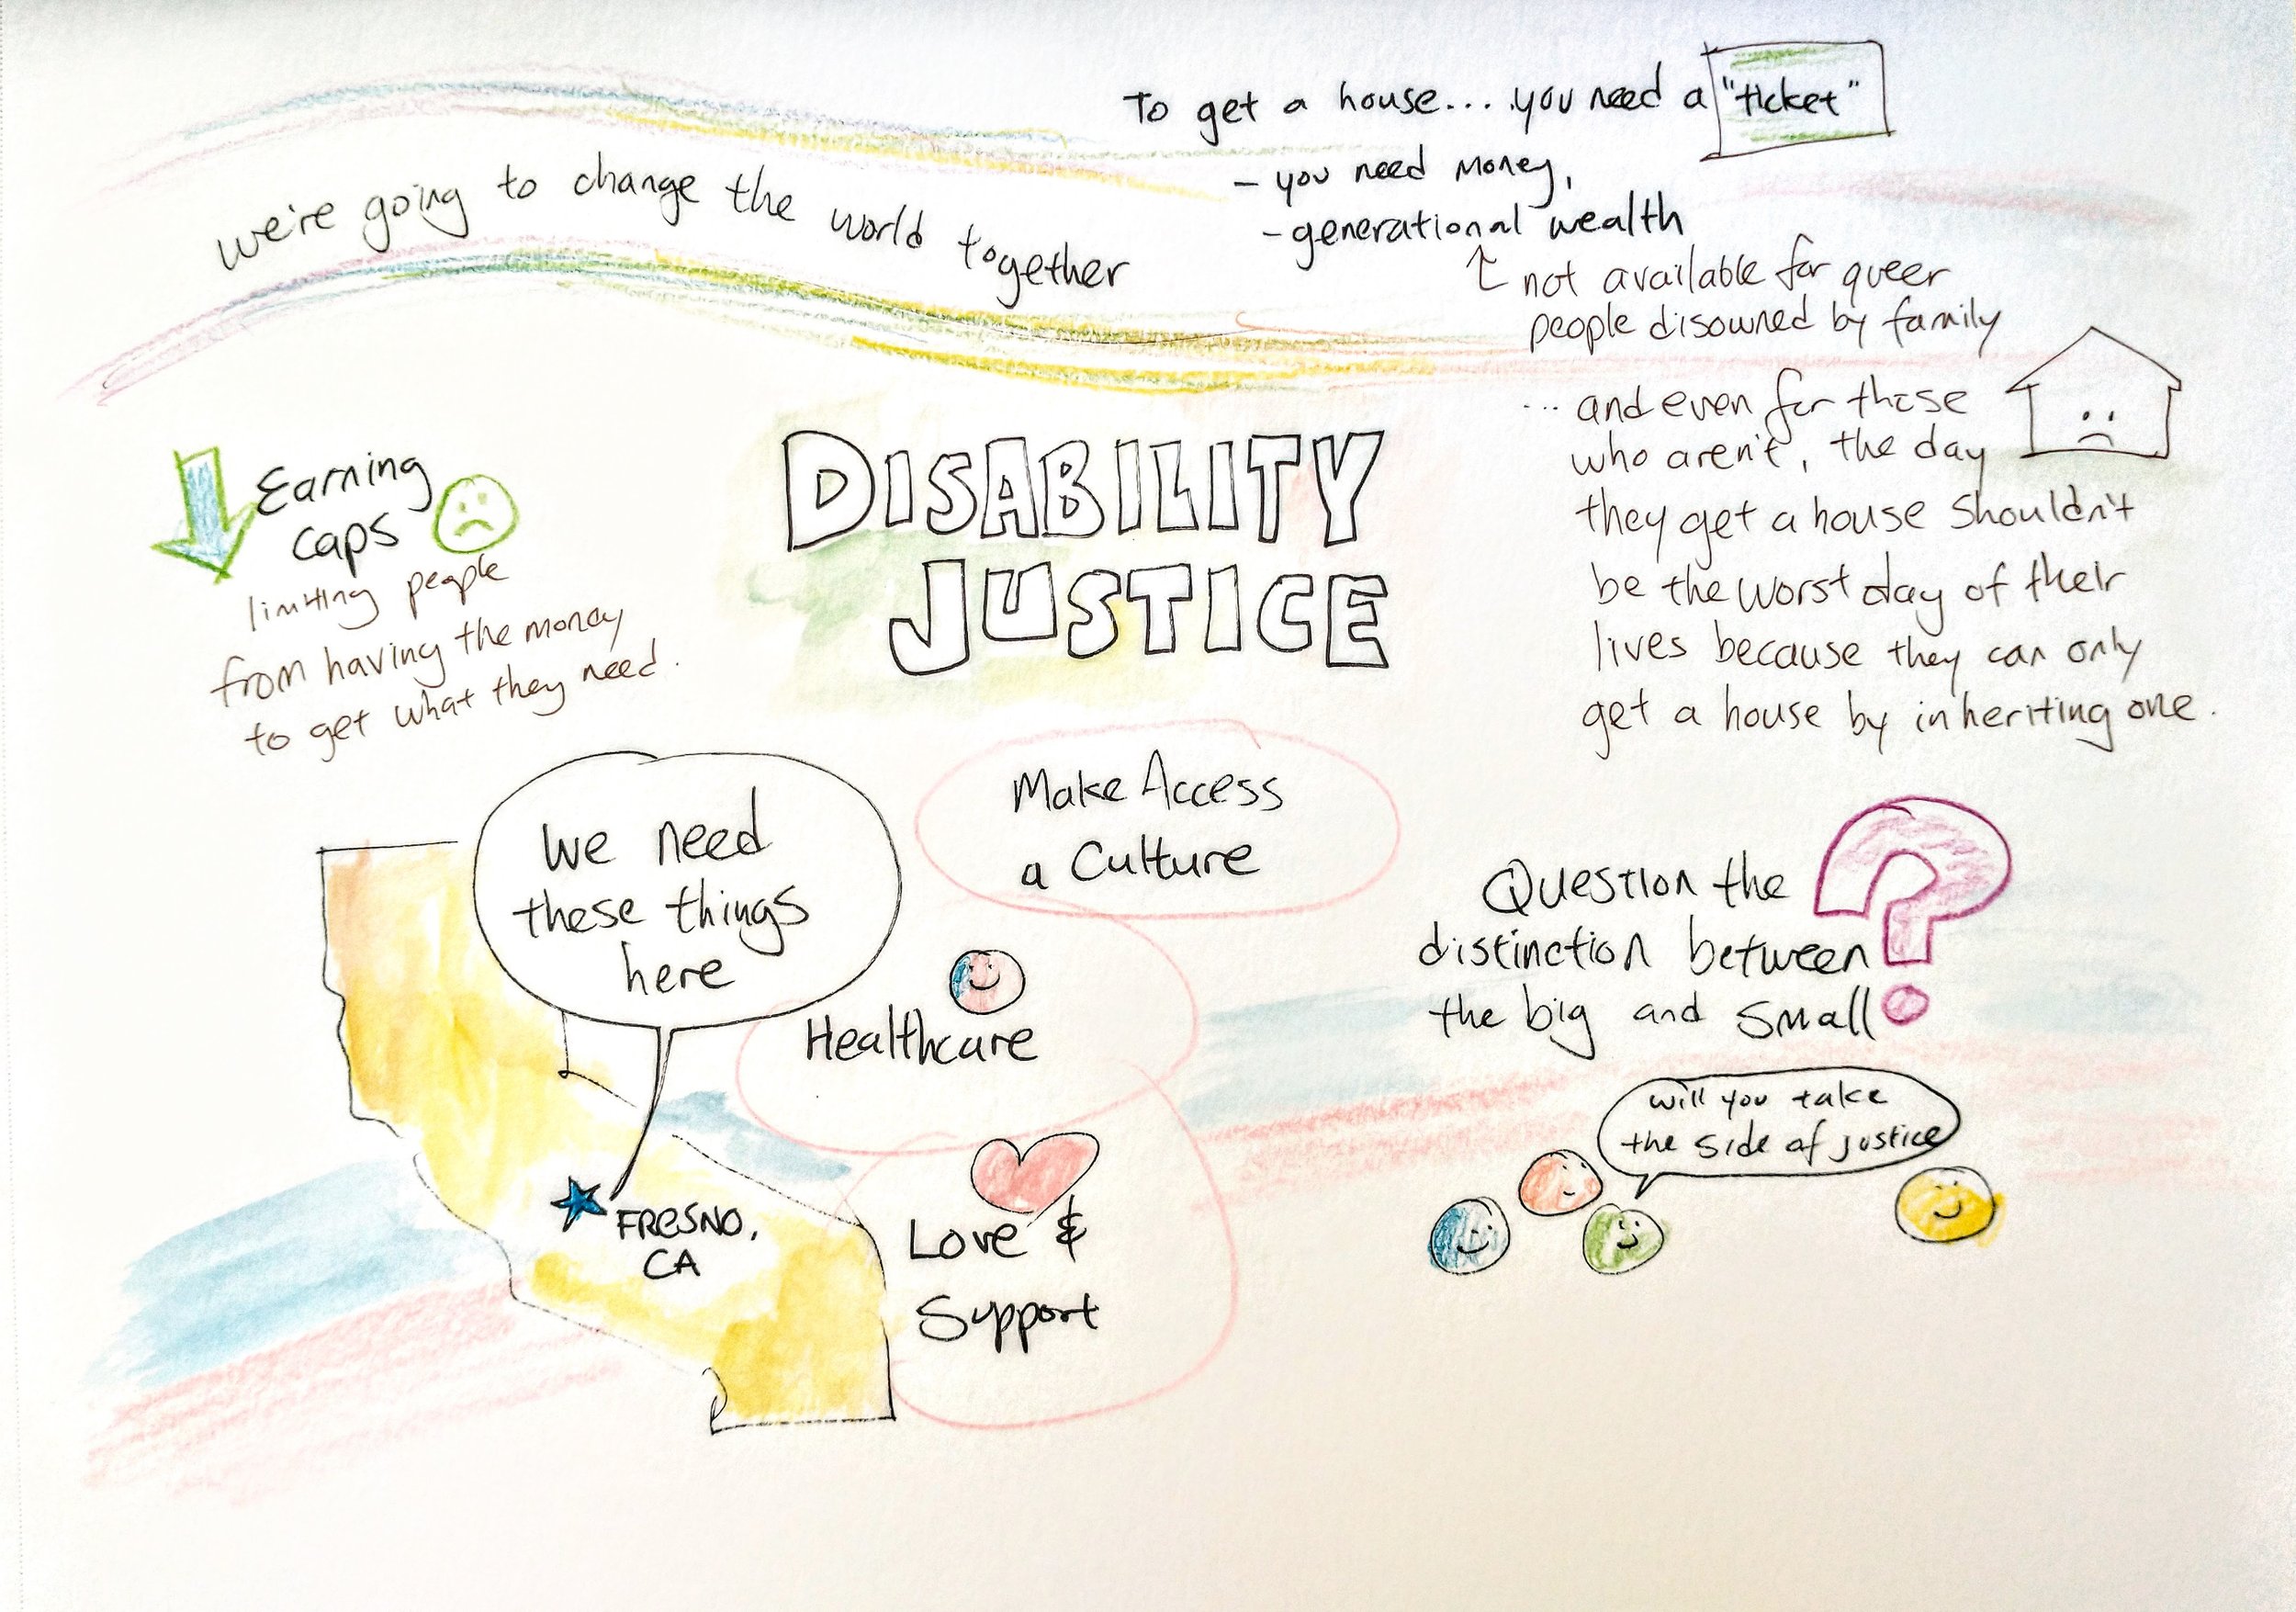 we're going to change the world together
To get a house... you need a "ticket"
- you need money,
- generational wealth
not available for queer
people disowned by family
... and even for those
who aren't, the day
they get a house shouldn't
be the worst day of their
lives because they can only
get a house by inheriting one.
Earning
caps
limiting people
from having the money
to get what they need.
DISABILITY
JUSTICE
We need
these things
here
FRESNO,
CA
Make Access
a Culture
Healthcare
Love &
Support
Question the
distinction between
the big and small
?
will you take
the side of justice